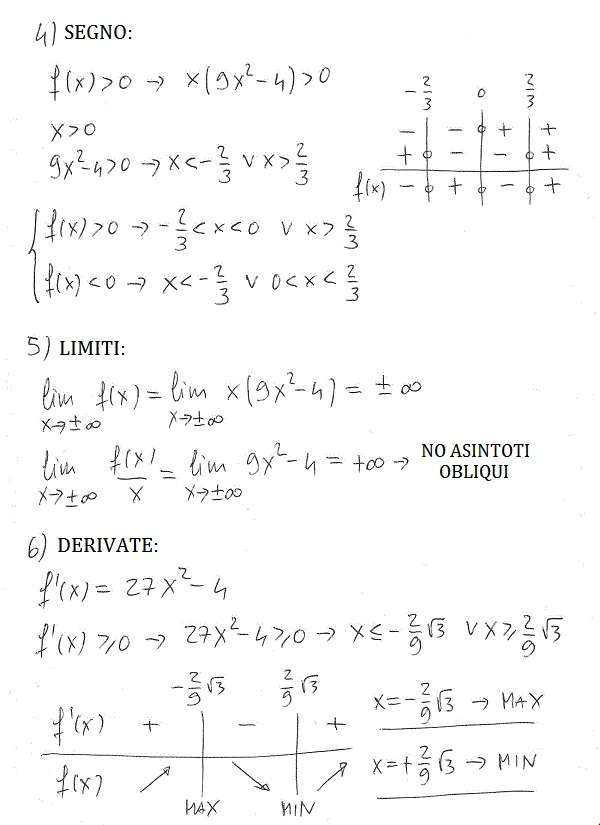 4) SEGNO:
f(x)>0 → x(9x²-4)>0
x>0
9x²-4>0 → x<-2/3 ∨ x>2/3
-2/3 0 2/3
- - + +
+ - - +
f(x) - + - +
f(x)>0 → -2/3<x<0 ∨ x>2/3
f(x)<0 → x<-2/3 ∨ 0<x<2/3
5) LIMITI:
lim x→±∞ f(x) = lim x→±∞ x(9x²-4) = ±∞
lim x→±∞ f(x)/x = lim x→±∞ 9x²-4 = +∞ → NO ASINTOTI
OBLIQUI
6) DERIVATE:
f'(x) = 27x²-4
f'(x)⩾0 → 27x²-4⩾0 → x≤-2/9√3 ∨ x⩾2/9√3
-2/9√3 2/9√3
f'(x) + - +
f(x) ↗ ↘ ↗
MAX MIN
x=-2/9√3 → MAX
x=+2/9√3 → MIN